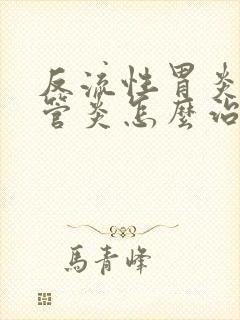 反流性胃炎
管炎怎麼治
馬青峰